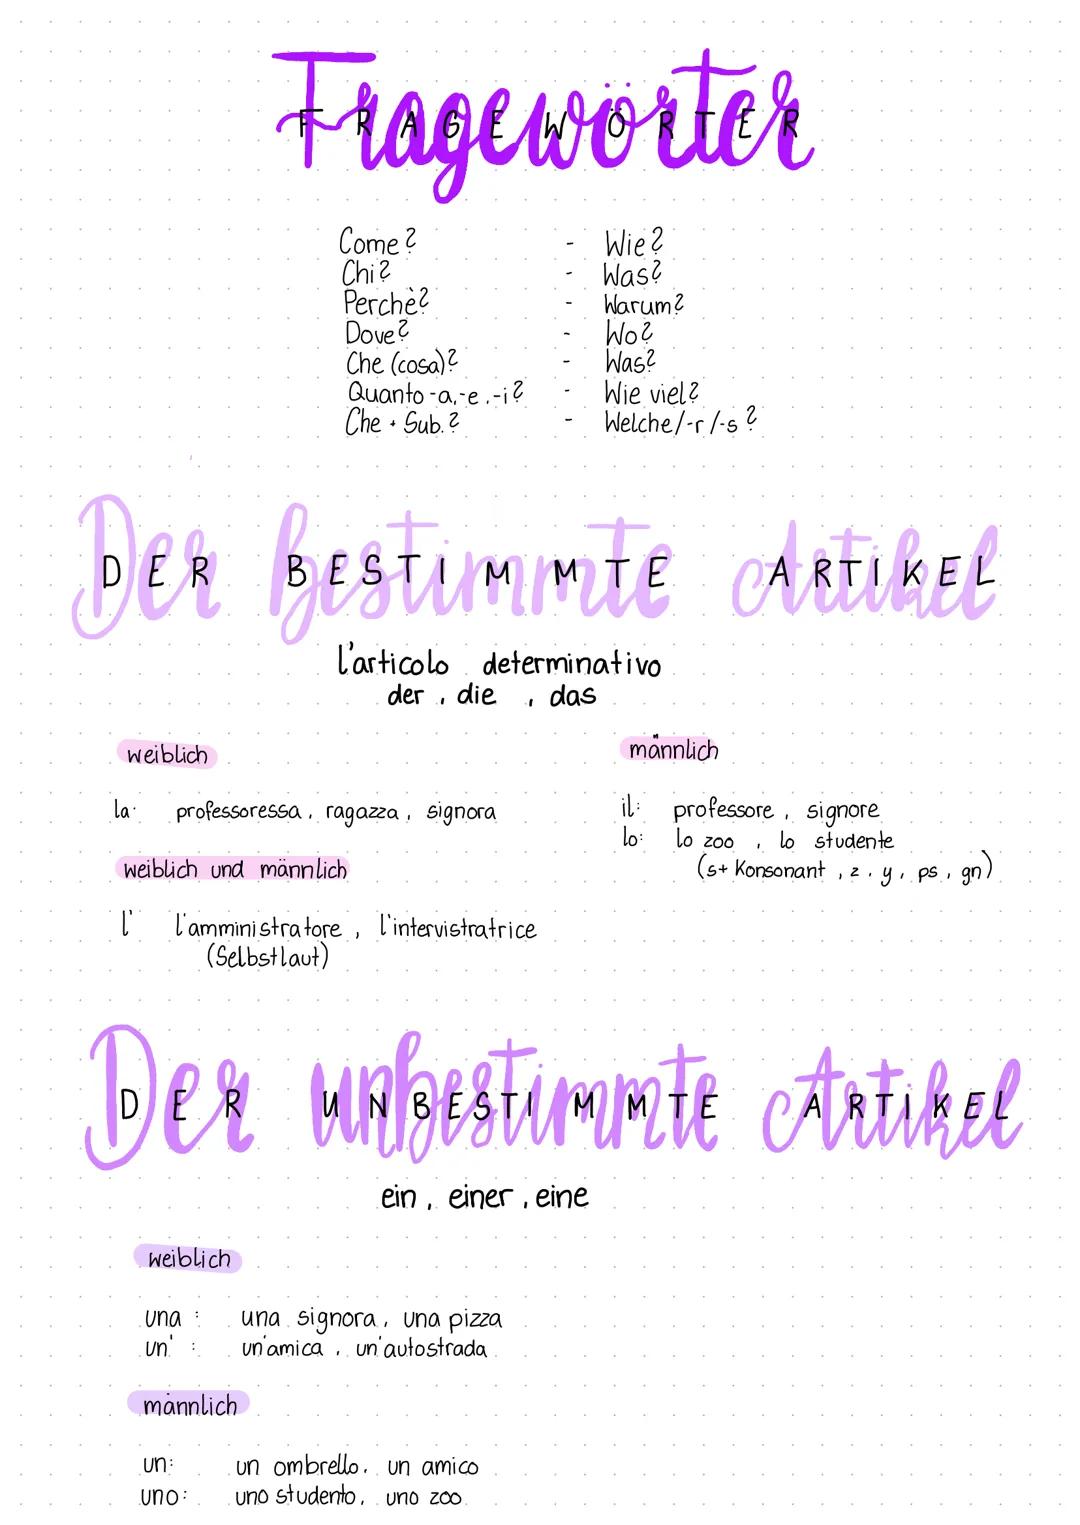 Fragewörter
FRAGEWÖRTER
Come? - Wie?
Chi? - Was?
Perchè? - Warum?
Dove? - Wo?
Che (cosa)? - Was?
Quanto -a,-e,-i? - Wie viel?
Che + Sub.? - Welche/-r/-s?
Der bestimmte Artikel
DER BESTIMMTE ARTIKEL
l'articolo determinativo
der, die, das
weiblich
la: professoressa, ragazza, signora
weiblich und männlich
l' l'amministratore, l'intervistratrice
(Selbstlaut)
männlich
il: professore, signore
lo: lo zoo, lo studente
(s+ Konsonant, z, y, ps, gn)
Der unbestimmte Artikel
DER UNBESTIMMTE ARTIKEL
ein, einer, eine
weiblich
una: una signora, una pizza
un': un'amica, un'autostrada
männlich
un: un ombrello, un amico
uno: uno studento, uno zoo